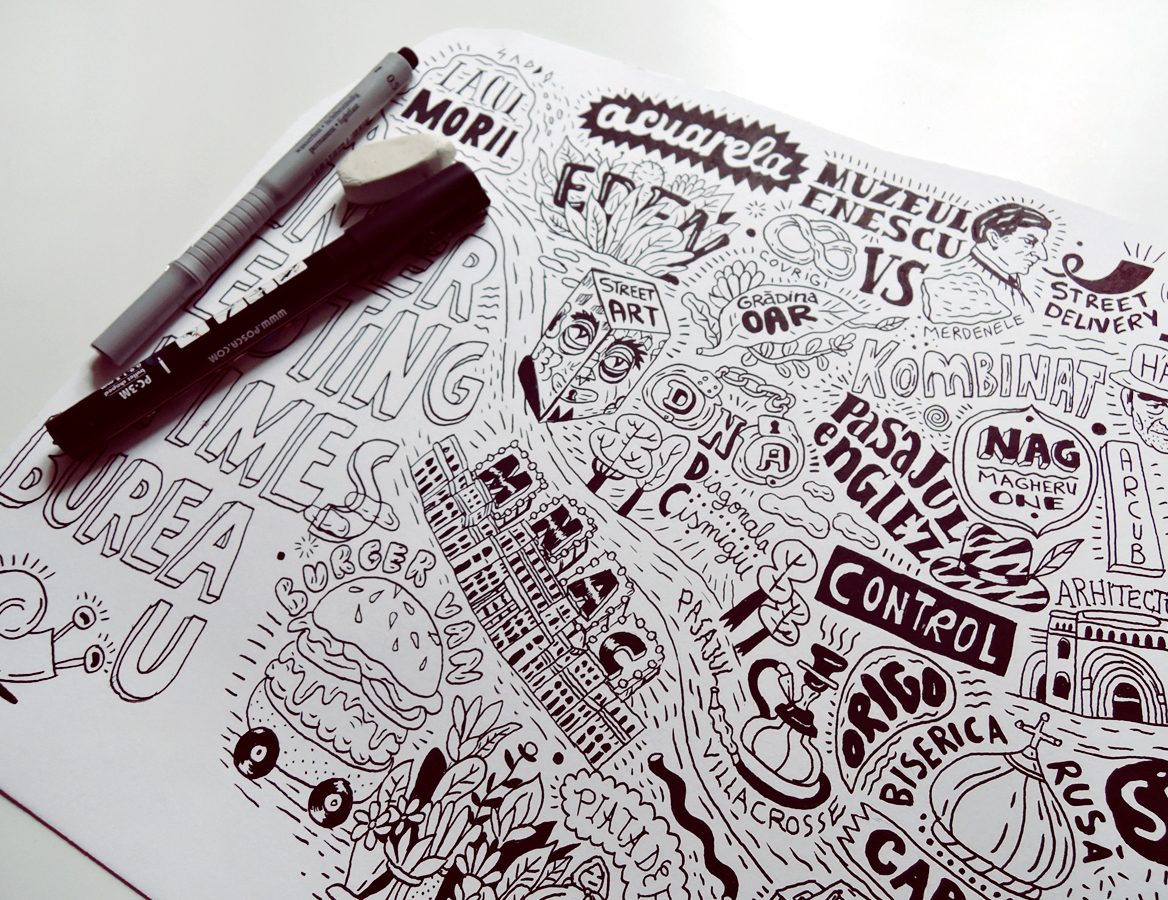 LACUL
MORII
acuarela
EDEN
MUZEUL
ENESCU
VS
COVRIGI
MERDENELE
STREET
DELIVERY
STREET
ART
GRĂDINA
OAR
KOMBINAT
DNA
PASAJUL
ENGLEZ
NAG
MAGHERU
ONE
ARCUB
TIMES
BUREA
U
MNAC
Diagonala
Cișmigiu
BURGER
VAN
CONTROL
PASAJUL
VILLACROSSE
ORIGO
BISERICA
RUSĂ
PIAȚA DE
www.POSCA.COM
PC-5M